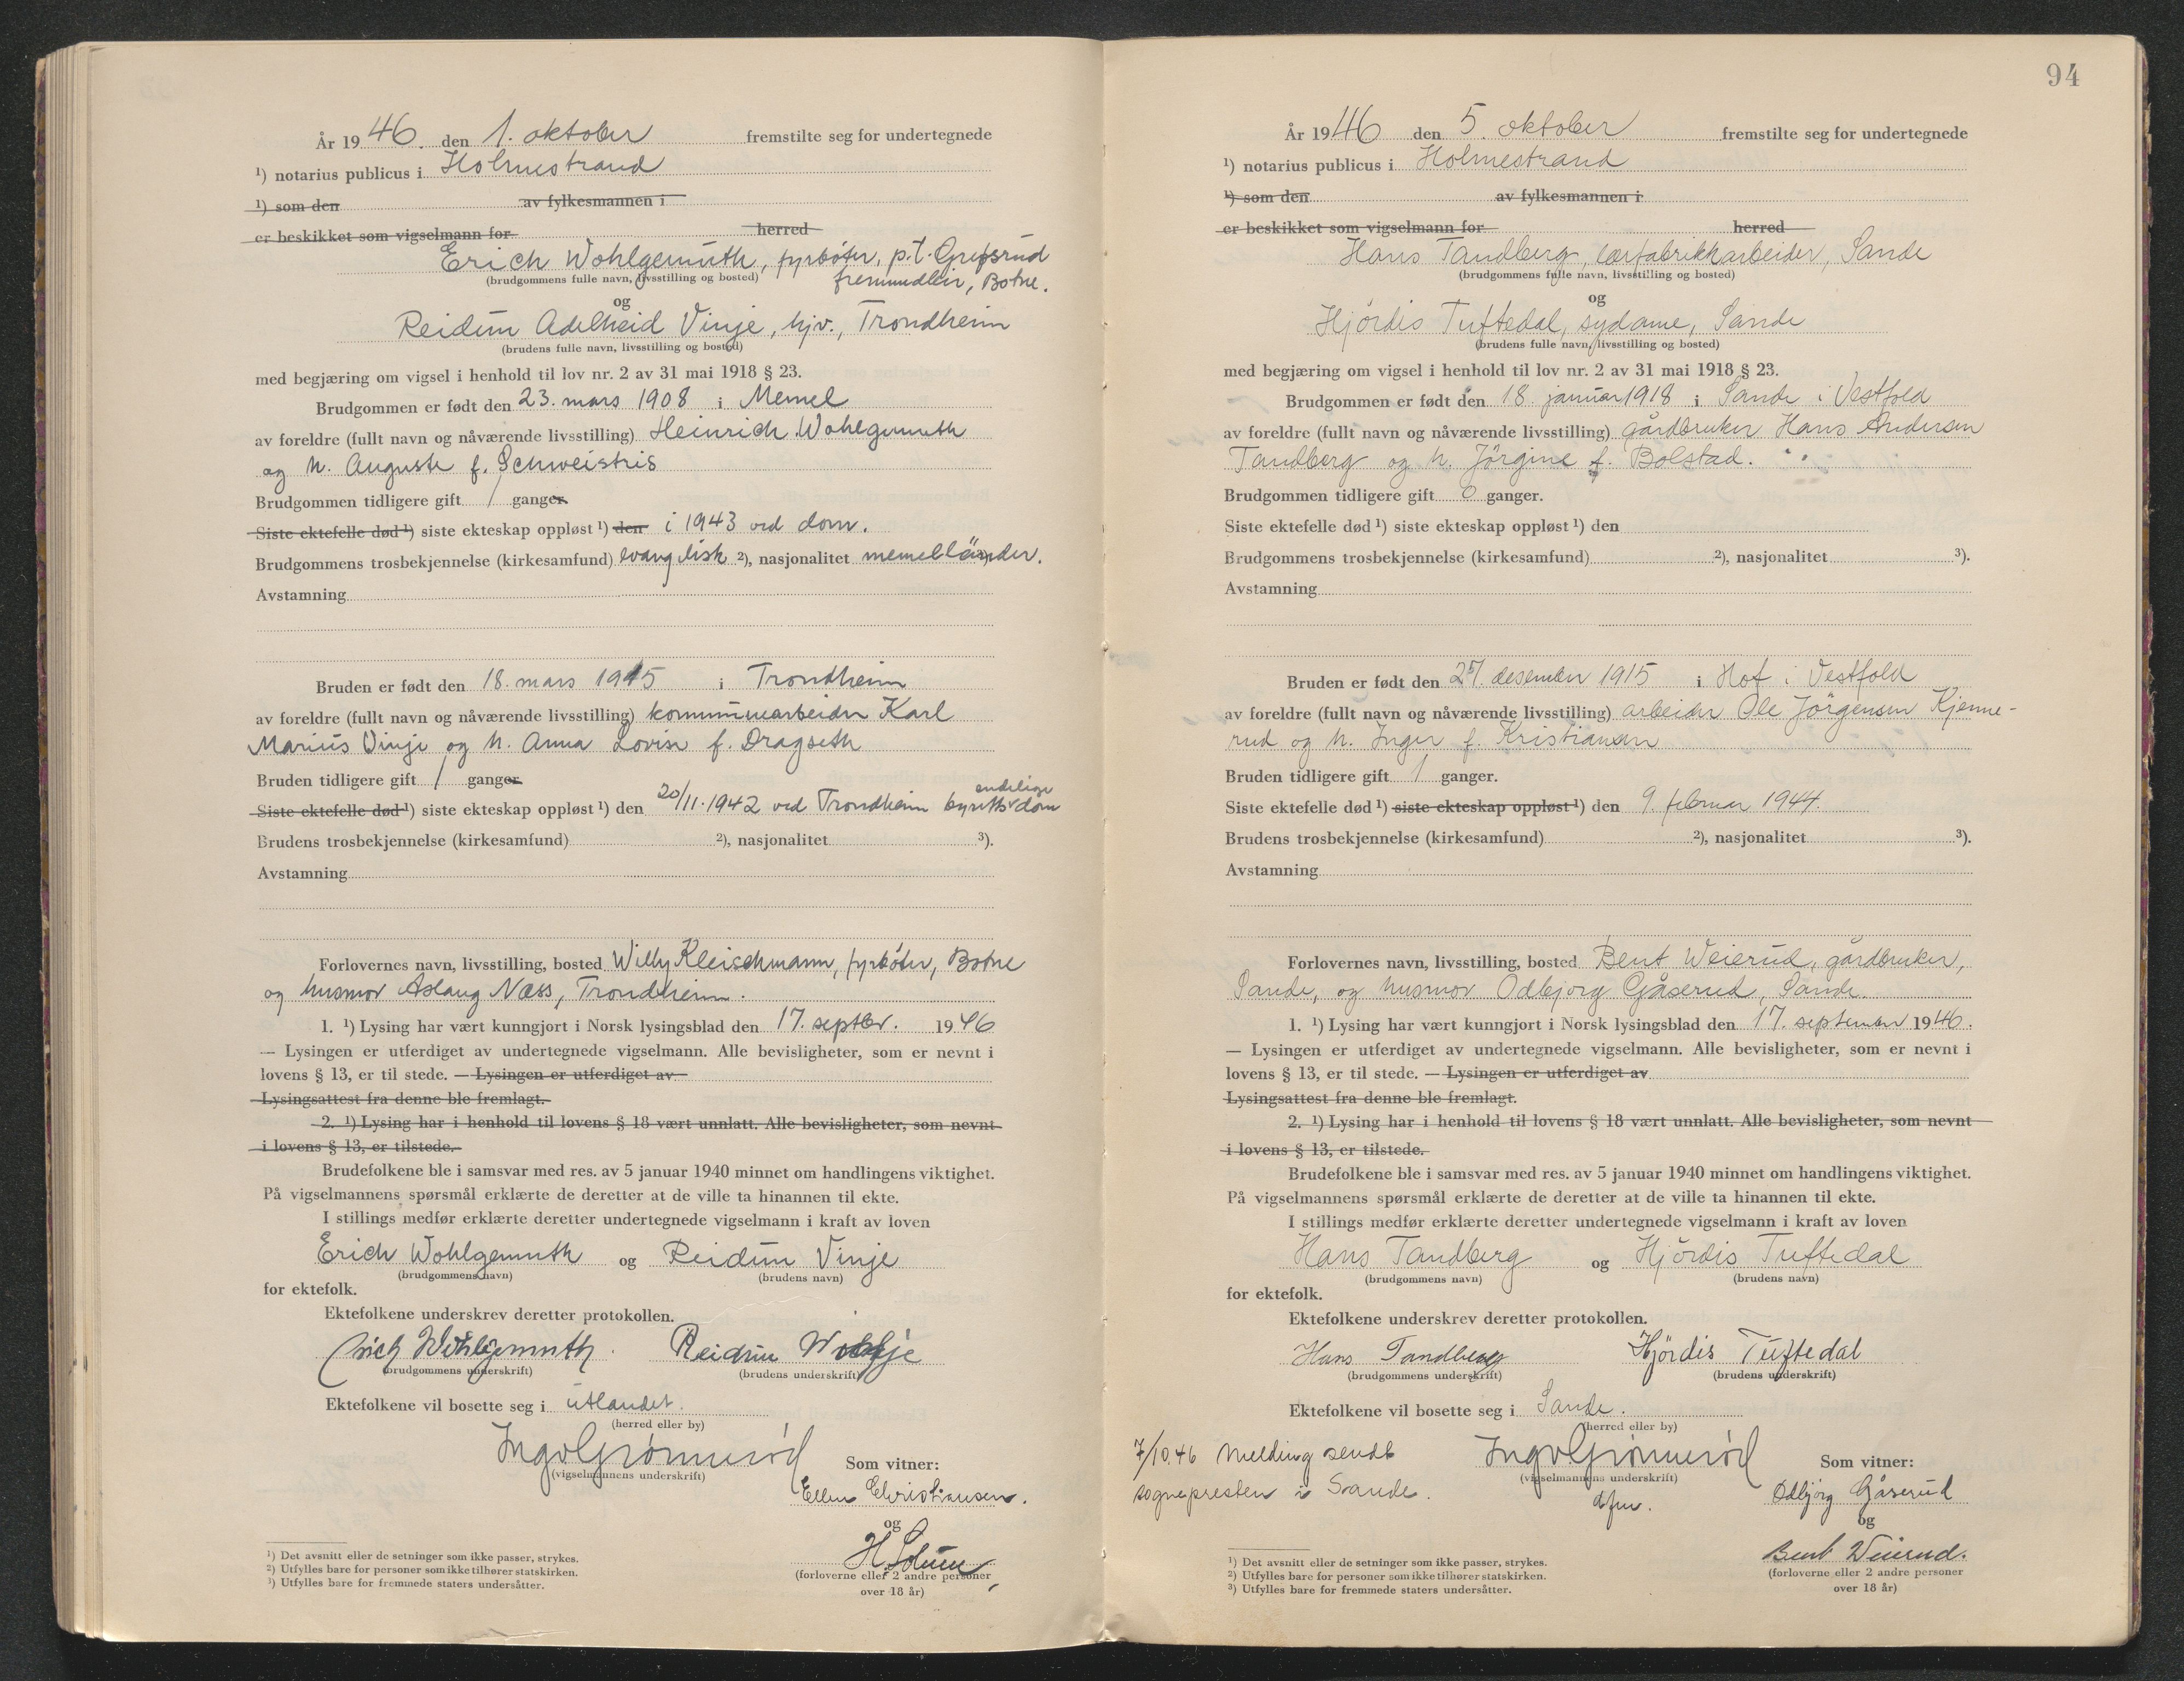 År 1946. den 1. oktober fremstilte seg for undertegnede
¹) notarius publicus i Holmestrand
¹) som den av fylkesmannen i
er beskikket som vigselmann for herred
Erich Wohlgemuth, fyrbøter, p.t. Grefsrud
(brudgommens fulle navn, livsstilling og bosted) fremmedleir, Botne.
og
Reidun Adelheid Vinje, hjv., Trondheim
(brudens fulle navn, livsstilling og bosted)
med begjæring om vigsel i henhold til lov nr. 2 av 31 mai 1918 § 23.
Brudgommen er født den 23. mars 1908 i Memel
av foreldre (fullt navn og nåværende livsstilling) Heinrich Wohlgemuth
og h. Auguste f. Schweistris
Brudgommen tidligere gift 1 ganger.
Siste ektefelle død ¹) siste ekteskap oppløst ¹) den i 1943 ved dom.
Brudgommens trosbekjennelse (kirkesamfund) evang.lisk ²), nasjonalitet memelländer.
Avstamning
Bruden er født den 18. mars 1915 i Trondheim
av foreldre (fullt navn og nåværende livsstilling) kommunearbeider Karl
Marius Vinje og h. Anna Lovise f. Dragseth
Bruden tidligere gift 1 ganger.
endelige
Siste ektefelle død ¹) siste ekteskap oppløst ¹) den 20/11.1942 ved Trondheim byretts dom
Brudens trosbekjennelse (kirkesamfund) ²), nasjonalitet ³).
Avstamning
Forlovernes navn, livsstilling, bosted Willy Kleischmann, fyrbøter, Botne
og husmor Aslaug Næss, Trondheim.
1. ¹) Lysing har vært kunngjort i Norsk lysingsblad den 17. septbr. 1946
— Lysingen er utferdiget av undertegnede vigselmann. Alle bevisligheter, som er nevnt i
lovens § 13, er til stede. — Lysingen er utferdiget av
Lysingsattest fra denne ble fremlagt.
2. ¹) Lysing har i henhold til lovens § 18 vært unnlatt. Alle bevisligheter, som nevnt
i lovens § 13, er tilstede.
Brudefolkene ble i samsvar med res. av 5 januar 1940 minnet om handlingens viktighet.
På vigselmannens spørsmål erklærte de deretter at de ville ta hinannen til ekte.
I stillings medfør erklærte deretter undertegnede vigselmann i kraft av loven
Erich Wohlgemuth og Reidun Vinje
(brudgommens navn) (brudens navn)
for ektefolk.
Ektefolkene underskrev deretter protokollen.
Erich Wohlgemuth. Reidun
(brudgommens underskrift) (brudens underskrift)
Ektefolkene vil bosette seg i utlandet.
(herred eller by)
Ingv Grønnerød
(vigselmannens underskrift) Som vitner:
Ellen Christiansen.
og
H. Solum
(forloverne eller 2 andre personer
over 18 år)
¹) Det avsnitt eller de setninger som ikke passer, strykes.
²) Utfylles bare for personer som ikke tilhører statskirken.
³) Utfylles bare for fremmede staters undersåtter.
94
År 1946 den 5. oktober fremstilte seg for undertegnede
¹) notarius publicus i Holmestrand
¹) som den av fylkesmannen i
er beskikket som vigselmann for herred
Hans Tandberg, lærfabrikkarbeider, Sande
(brudgommens fulle navn, livsstilling og bosted)
og
Hjördis Tuftedal, sydame, Sande
(brudens fulle navn, livsstilling og bosted)
med begjæring om vigsel i henhold til lov nr. 2 av 31 mai 1918 § 23.
Brudgommen er født den 18. januar 1918 i Sande i Vestfold
av foreldre (fullt navn og nåværende livsstilling) gårdbruker Hans Andersen
Tandberg og h. Jörgine f. Bolstad.
Brudgommen tidligere gift 0 ganger.
Siste ektefelle død ¹) siste ekteskap oppløst ¹) den
Brudgommens trosbekjennelse (kirkesamfund) ²), nasjonalitet ³).
Avstamning
Bruden er født den 27. desember 1915 i Hof i Vestfold
av foreldre (fullt navn og nåværende livsstilling) arbeider Ole Jörgensen Kjenne-
rud og h. Inger f. Kristiansen
Bruden tidligere gift 1 ganger.
Siste ektefelle død ¹) siste ekteskap oppløst ¹) den 9. februar 1944.
Brudens trosbekjennelse (kirkesamfund) ²), nasjonalitet ³).
Avstamning
Forlovernes navn, livsstilling, bosted Bent Weierud, gårdbruker,
Sande, og husmor Odbjørg Gåserud, Sande.
1. ¹) Lysing har vært kunngjort i Norsk lysingsblad den 17. september 1946.
— Lysingen er utferdiget av undertegnede vigselmann. Alle bevisligheter, som er nevnt i
lovens § 13, er til stede. — Lysingen er utferdiget av
Lysingsattest fra denne ble fremlagt.
2. ¹) Lysing har i henhold til lovens § 18 vært unnlatt. Alle bevisligheter, som nevnt
i lovens § 13, er tilstede.
Brudefolkene ble i samsvar med res. av 5 januar 1940 minnet om handlingens viktighet.
På vigselmannens spørsmål erklærte de deretter at de ville ta hinannen til ekte.
I stillings medfør erklærte deretter undertegnede vigselmann i kraft av loven
Hans Tandberg og Hjördis Tuftedal
(brudgommens navn) (brudens navn)
for ektefolk.
Ektefolkene underskrev deretter protokollen.
Hans Tandberg Hjördis Tuftedal
(brudgommens underskrift) (brudens underskrift)
Ektefolkene vil bosette seg i Sande.
(herred eller by)
7/10.46 Melding sendt Ingv Grønnerød
sognepresten i Sande. (vigselmannens underskrift) Som vitner:
dfm. Odbjørg Gåserud
og
Bent Weierud.
(forloverne eller 2 andre personer
over 18 år)
¹) Det avsnitt eller de setninger som ikke passer, strykes.
²) Utfylles bare for personer som ikke tilhører statskirken.
³) Utfylles bare for fremmede staters undersåtter.